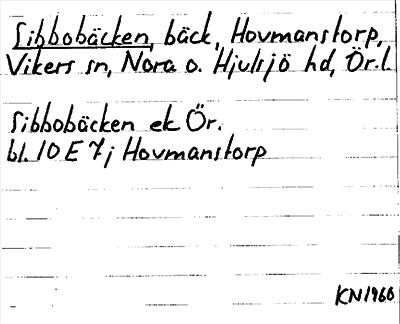 Sibbobäcken, bäck, Hovmanstorp,
Vikers sn, Nora o. Hjulsjö hd, Ör.l.
Sibbobäcken ek Ör.
bl. 10 E 7j Hovmanstorp
KN1960